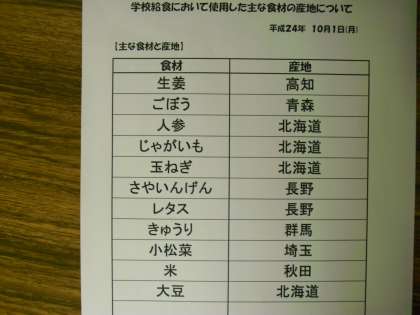 学校給食において使用した主な食材の産地について
平成24年 10月1日(月)
【主な食材と産地】
食材 産地
生姜 高知
ごぼう 青森
人参 北海道
じゃがいも 北海道
玉ねぎ 北海道
さやいんげん 長野
レタス 長野
きゅうり 群馬
小松菜 埼玉
米 秋田
大豆 北海道